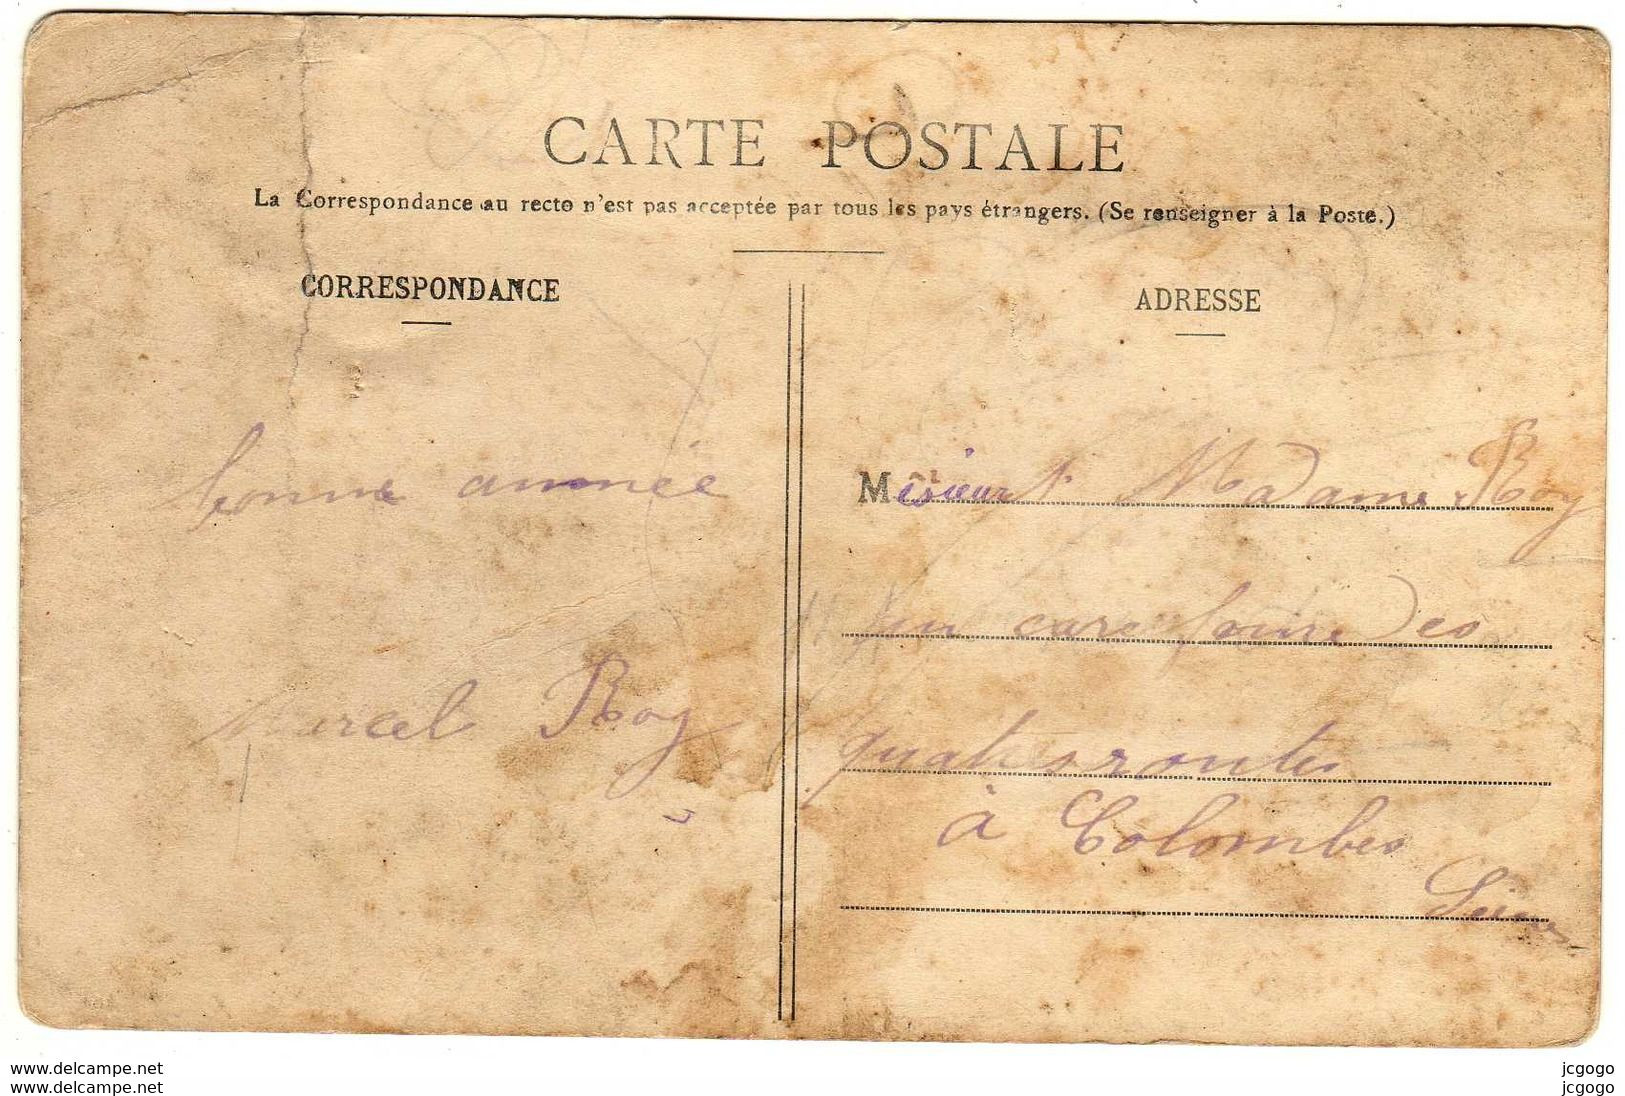 CARTE POSTALE
La Correspondance au recto n'est pas acceptée par tous les pays étrangers. (Se renseigner à la Poste.)
CORRESPONDANCE
bonne année
Marcel Roy
ADRESSE
Madame Roy
care foure des
quatres routes
à Colombes
Seine
www.delcampe.net
www.delcampe.net
jcgogo
jcgogo